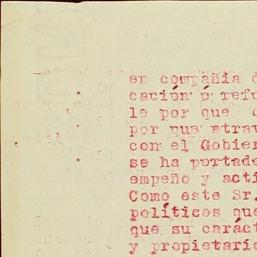 en compañia d
cación ó refu
le por que
por que atrav
con el Gobier
se ha portado
empeño y acti
Como este Sr.
políticos que
que su caráct
y propietario